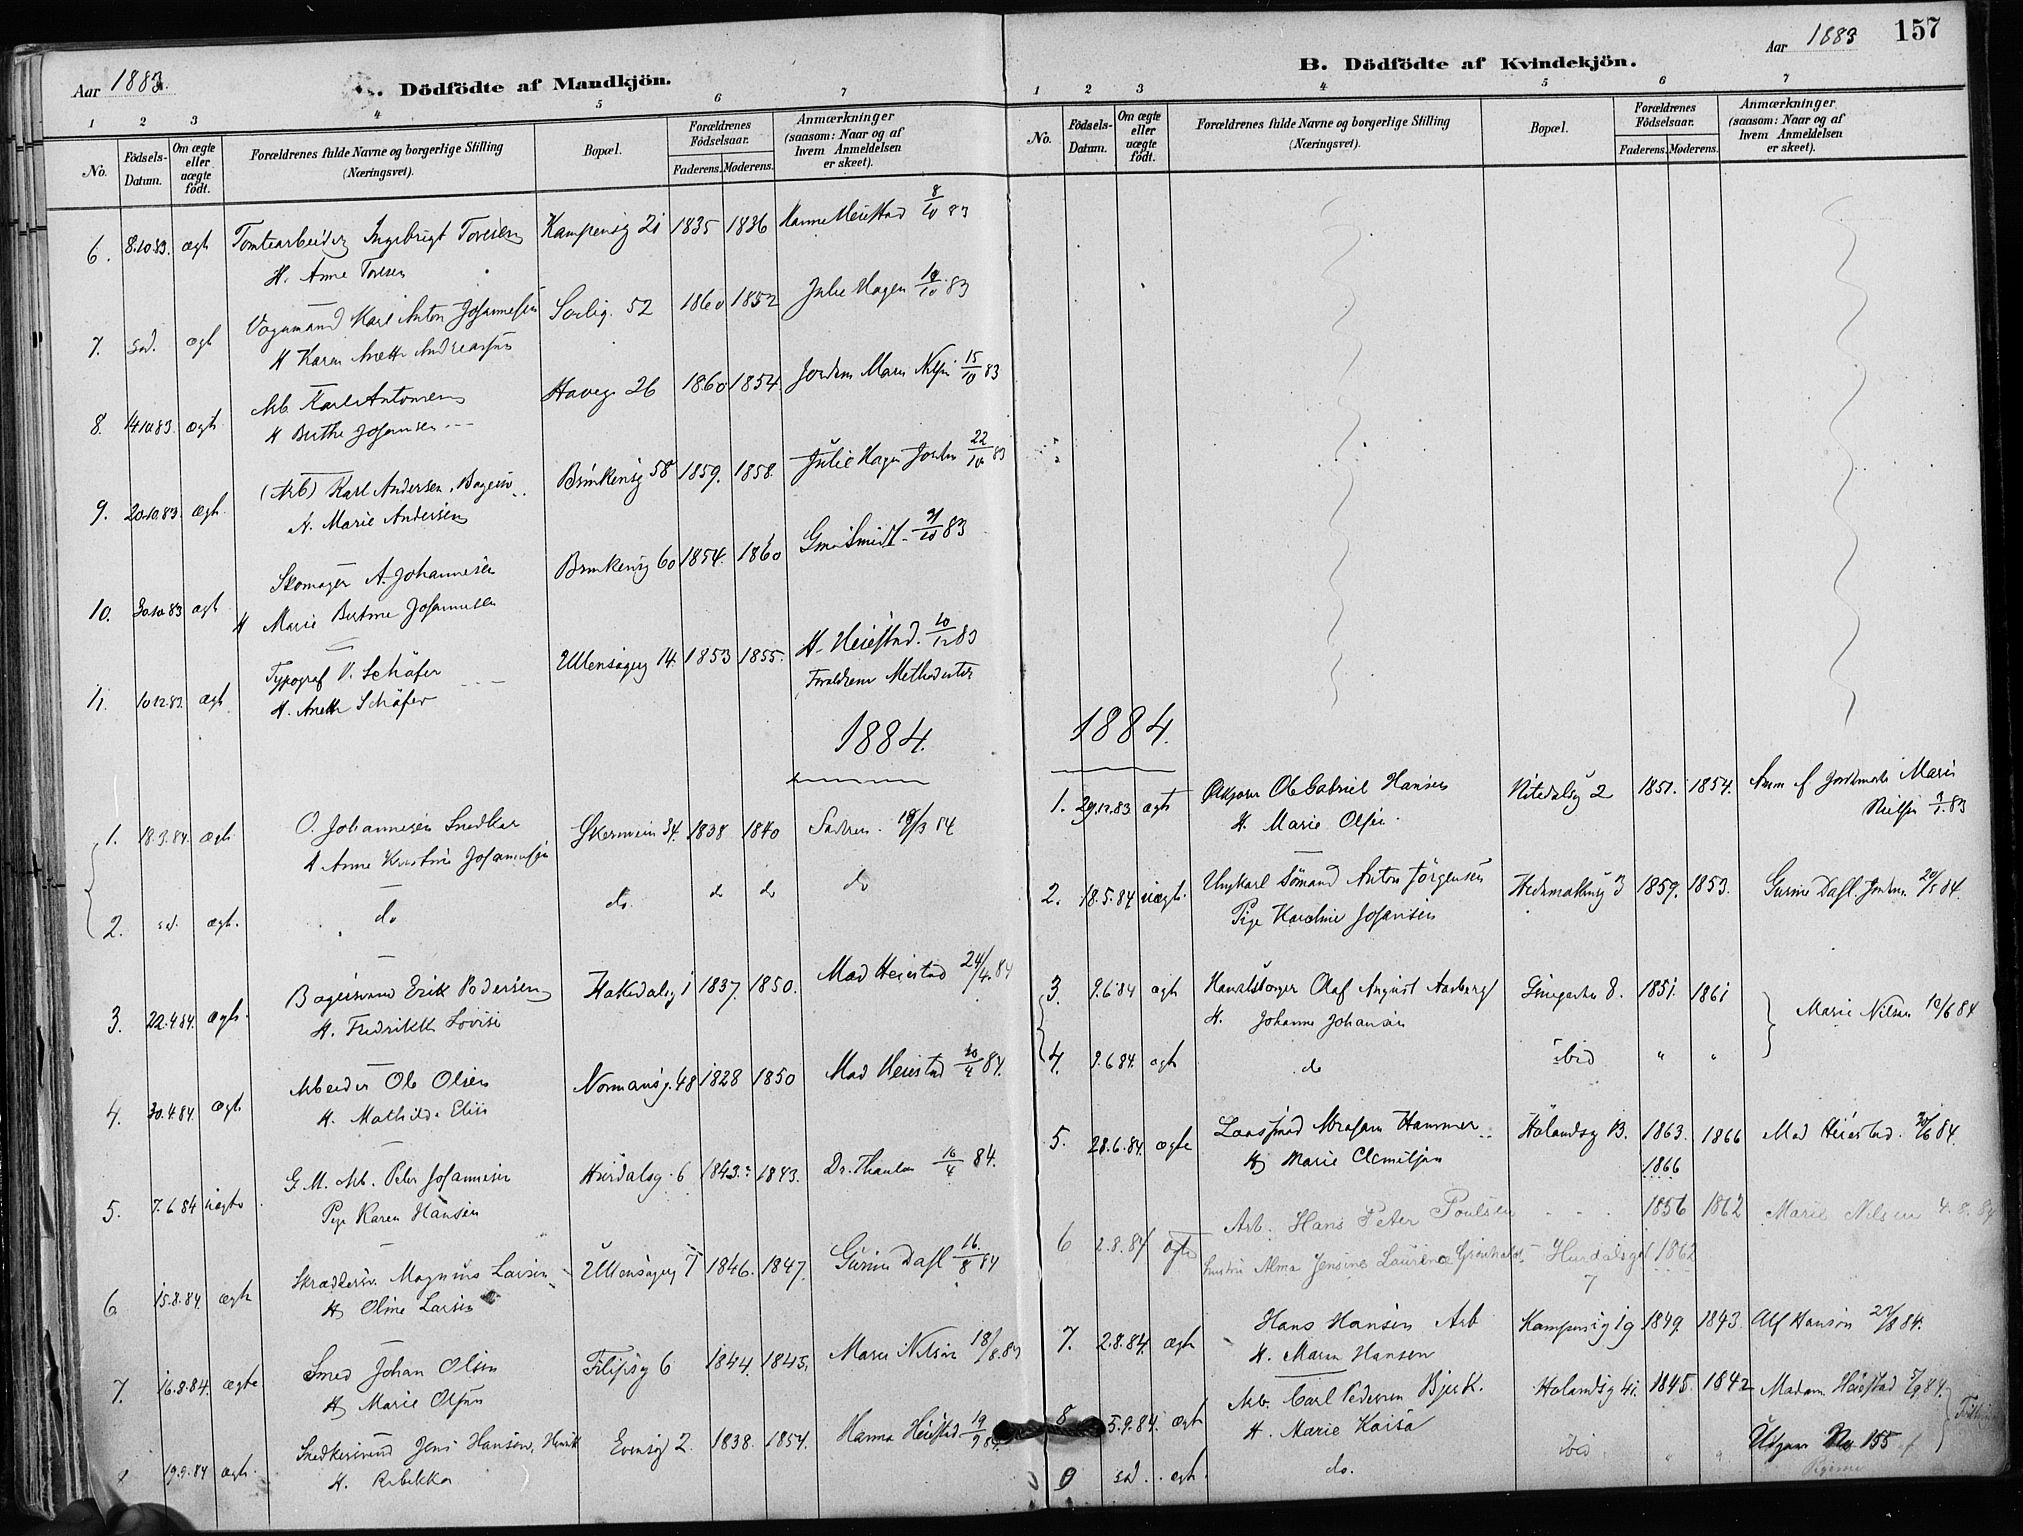 Aar 1883.
A. Dödfödte af Mandkjön.
1 2 3 4 5 6 7
No. Födsels-Datum. Om ægte eller uægte födt. Forældrenes fulde Navne og borgerlige Stilling (Næringsvei). Bopæl. Forældrenes Födselsaar. Faderens. Moderens. Anmærkninger (saasom: Naar og af hvem Anmeldelsen er skeet).
6. 8.10.83. ægt Tomtearbeider Ingebrigt Toresen Kampensg 21 1835 1836 Hanne Heiestad 8/10 83
H. Anne Toresen
7. sad. ægt Vognmand Karl Anton Johannesen Sorlig. 52 1860 1852 Julie Hagen 10/10 83
H Karen Anette Andreassen
8. 14.10.83. ægt Arb. Karl Antonsen Haveg 26 1860 1854 Jordem Maren Nilsen 15/10 83
H Berthe Johansen
9. 20.10.83. ægt. (Arb) Karl Andersen, Bagersv. Brinkensg 58 1859. 1858. Julie Hagen Jordm 22/10 83
H. Marie Andersen
10. 30.10.83 ægt Skomager A. Johannesen Brinkensg 60 1854. 1860 Smidt 31/10 83
H Marie Bertine Johannesen
11. 10.12.83. ægt Typograf V. Schäfer Ullensagerg 14. 1853 1855. H. Heiestad. 10/12 83
H. Anette Schäfer Forældrene Methodister
1884.
1. 18.3.84. ægt O. Johannesen Snedker Skervein 34. 1838 1840 18/3 84
H Anne Kristine Johannesen
2. sd. ægt. do do. do do do
3. 22.4.84. ægt. Bagersvend Erik Pedersen Hakedalsg 1 1837. 1850. Mad Heiestad 24/4. 84
H. Fredrikke Lovise
4. 30.4.84. ægt Arbeider Ole Olsen Normansg. 48 1828 1850 Mad Heiestad 30/4 84.
H. Mathilde Elise
5. 7.6.84 uægte G. M. Arb. Peter Johannesen Hurdalsg. 6 1843. 1843. Dr. Thaulow 16/4 84.
Pige Karen Hansen
6 15.8.84. ægte Skrædersv. Magnus Larsen Ullensagerg 7 1846. 1847. Gurine Dahl 16/8 84
H Oline Larsen
7. 16.8.84. ægte Smed Johan Olsen Filipsg 6 1844. 1845. Maren Nilsen 18/8.84
H Marie Olsen
8 19.9.84 ægt. Snedkersvend Jens Hansen, Evensg 2. 1838. 1854. Hanna Heiestad 19/9 84.
H. Rebekka
Aar 1883 157
B. Dödfödte af Kvindekjön.
1 2 3 4 5 6 7
No. Födsels-Datum. Om ægte eller uægte födt. Forældrenes fulde Navne og borgerlige Stilling (Næringsvei). Bopæl. Forældrenes Födselsaar. Faderens. Moderens. Anmærkninger (saasom: Naar og af hvem Anmeldelsen er skeet).
1884.
1. 29.12.83. ægt Ole Gabriel Hansen Nitedalsg 2 1851. 1854. Anm af Jordmoder Maren
H. Marie Olsen. Nielsen 3/1.83
2. 18.5.84 uægt. Ungkarl Sömand Anton Jörgensen Hedemarksg 3 1859. 1853. Gurine Dahl Jordm. 20/5 84.
Pige Karoline Johansen
3. 9.6.84 ægt Handelsborger Olaf August Aasberg 8. 1851. 1861 Marie Nilsen 10/6 84
H. Johanne Johansen
4. 9.6.84. ægt do ibid " "
5. 28.6.84. ægte Abraham Hammer Hölandsg 13. 1863. 1866 Mad Heiestad. 30/6 84.
H Marie 1866
6 2.8.84 ægte Arb. Hans Peter Poulsen 1856 1862 Marie Nilsen 4.8.84
Hustru Alma Jensine Laurence Hurdalsgd 1862
7
7. 2.8.84. ægt Hans Hansen Arb Kampensg 19 1849. 1843. Alf Hanson 27/8 84.
H. Maren Hansen
8 5.9.84. ægt Arb. Carl Pedersen Bjerk. Holandsg 41. 1845. 1842 Madam Heiestad 7/9 84.
H. Marie Kaisa
9 sad. ægt. do. ibid " " Utgaar No 155